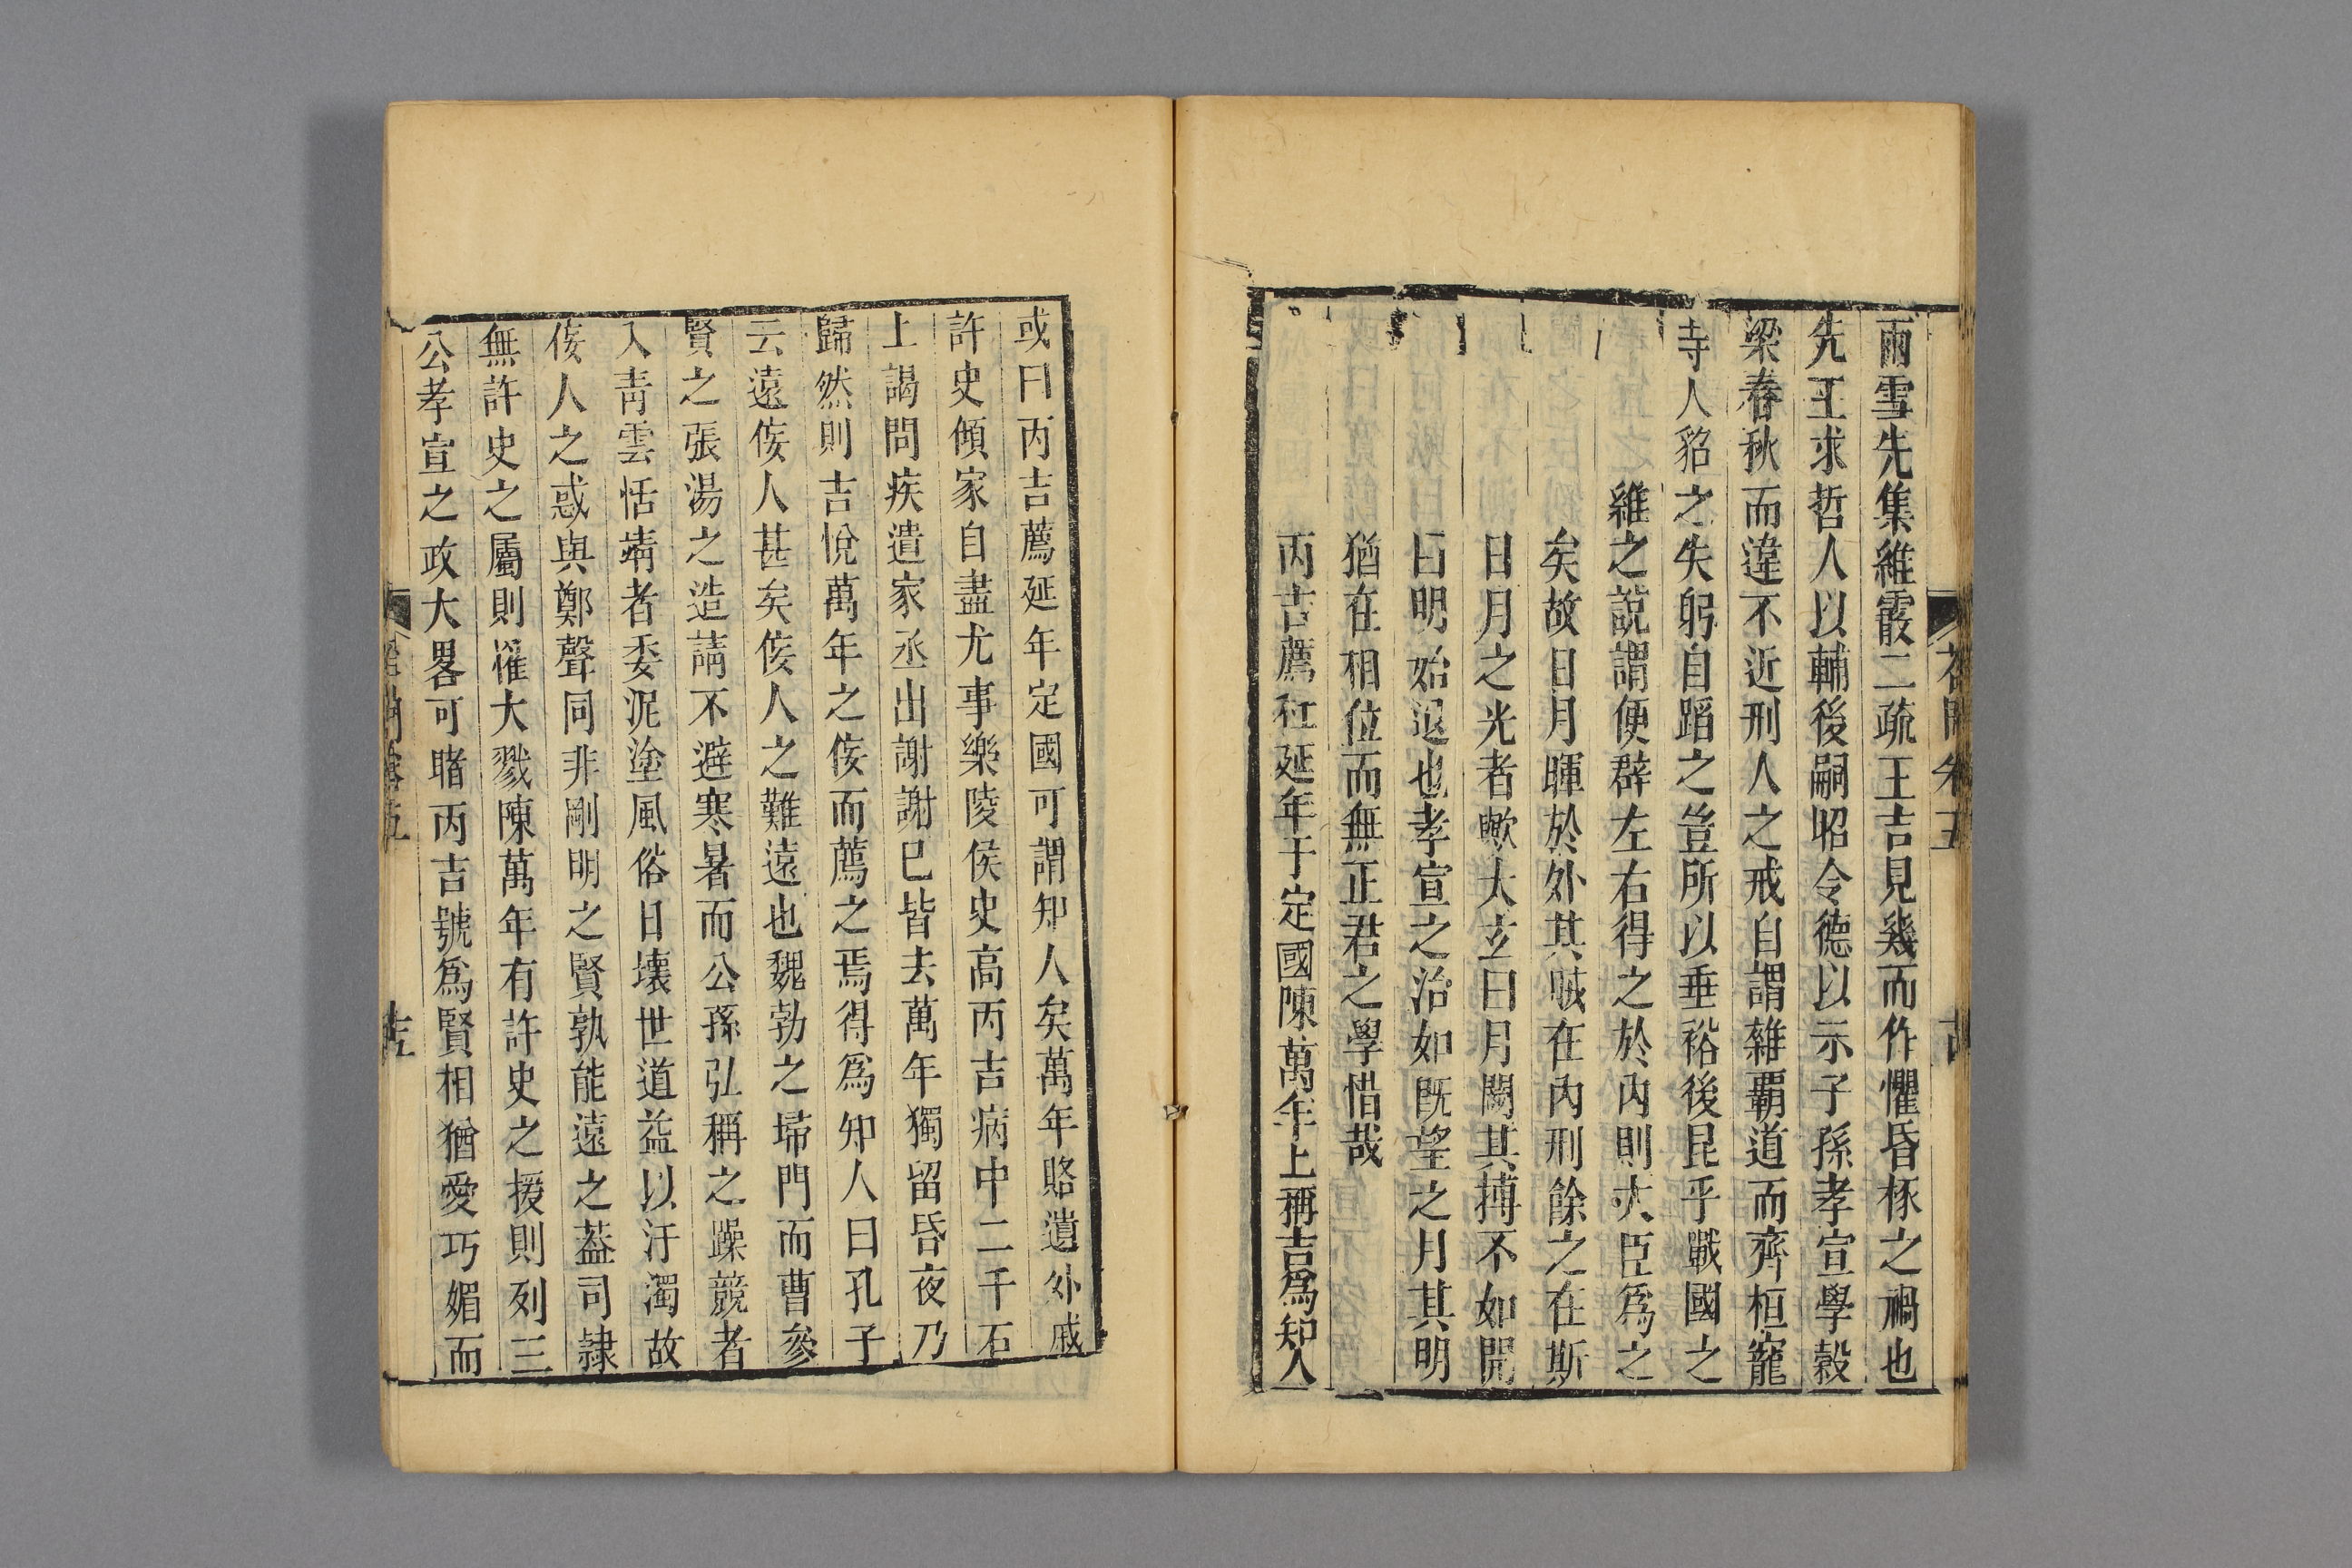 雨雪先集維霰二疏王吉見幾而作懼昏椓之禍也
先王求哲人以輔後嗣昭令德以示子孫孝宣學穀
梁春秋而違不近刑人之戒自謂雜覇道而齊桓寵
寺人貂之失躬自蹈之豈所以垂裕後昆乎戰國之
維之說謂便群左右得之於內則大臣爲之
矣故日月暉於外其賊在內刑餘之在斯
日月之光者歟太玄曰月闕其摶不如開
明始退也孝宣之治如既望之月其明
猶在相位而無正君之學惜哉
丙吉薦杜延年于定國陳萬年上稱吉爲知人
或曰丙吉薦延年定國可謂知人矣萬年賂遺外戚
許史傾家自盡尤事樂陵侯史高丙吉病中二千石
上謁問疾遣家丞出謝謝已皆去萬年獨留昏夜乃
歸然則吉悅萬年之侫而薦之焉得爲知人曰孔子
云遠侫人甚矣侫人之難遠也魏勃之埽門而曹參
賢之張湯之造請不避寒暑而公孫弘稱之躁競者
入靑雲恬靖者委泥塗風俗日壞世道益以汙濁故
侫人之惑與鄭聲同非剛明之賢孰能遠之葢司隷
無許史之屬則罹大戮陳萬年有許史之援則列三
公孝宣之政大畧可睹丙吉號爲賢相猶愛巧媚而